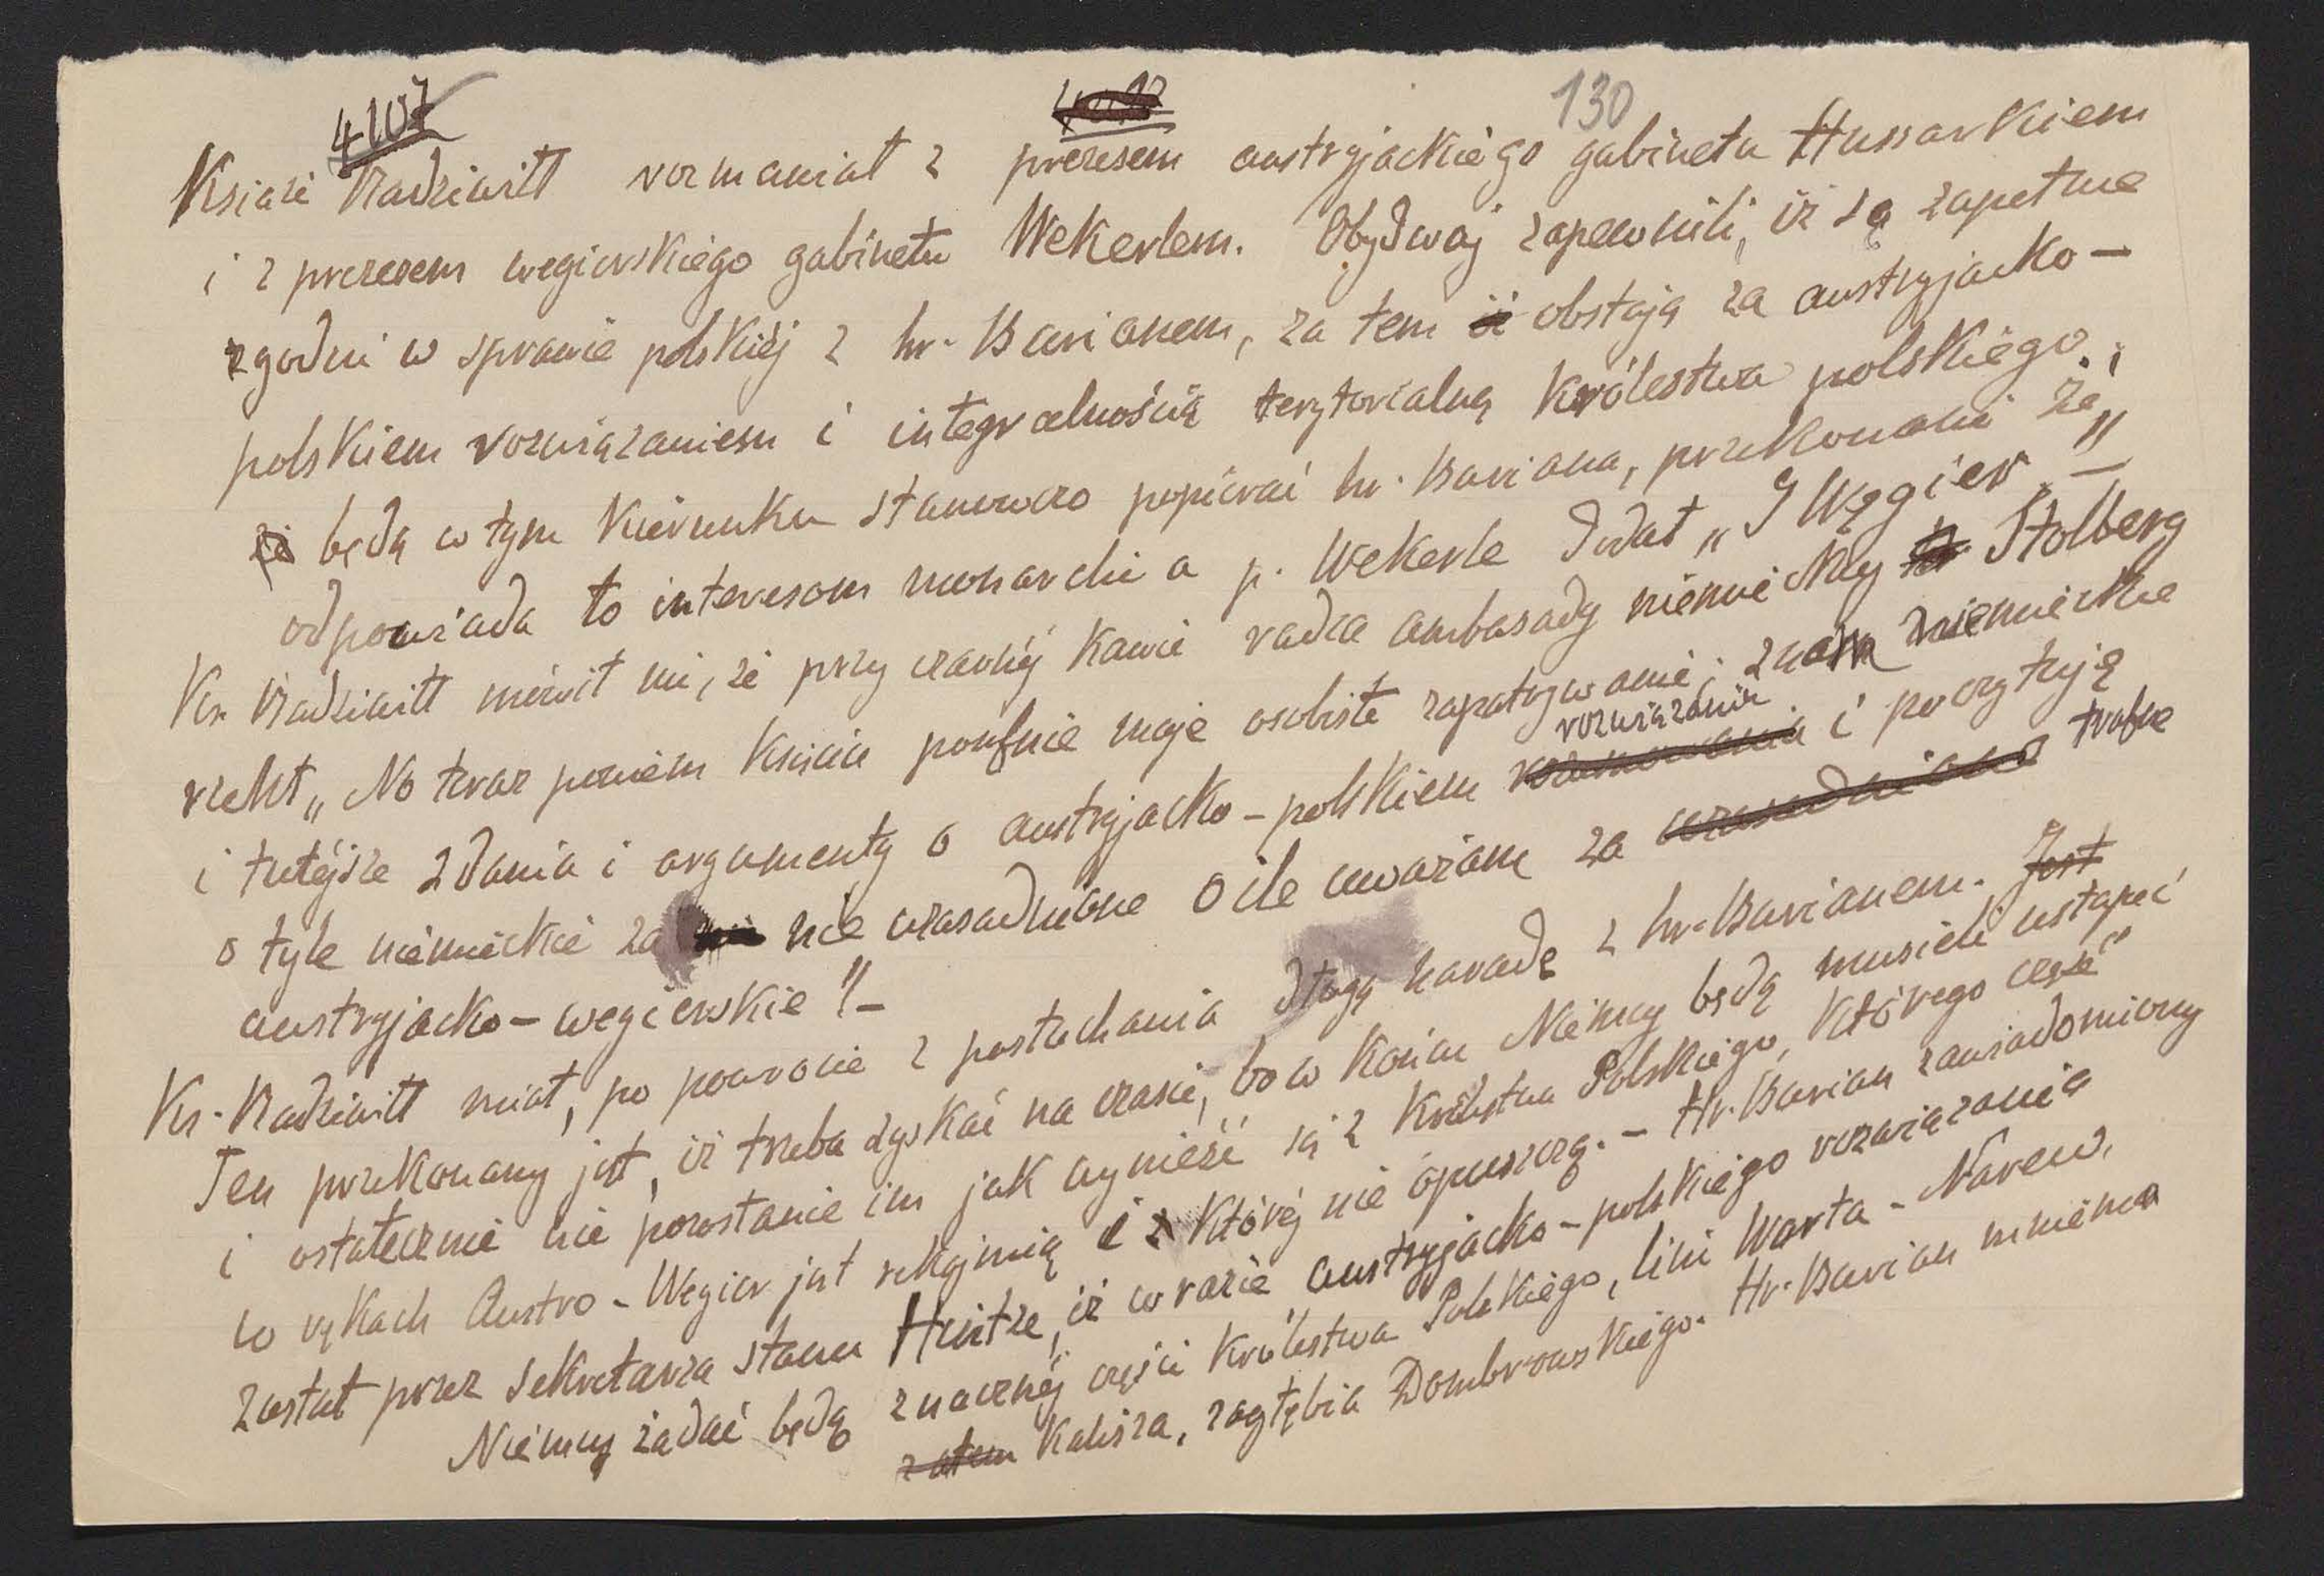 4107
130
Książe Radziwiłł rozmawiał z prezesem austryjackiego gabinetu Hussarkiem
i z prezesem węgierskiego gabinetu Wekerlem. Obydwaj zapewnili, iż są zapełnie
zgodni w sprawie polskiéj z hr. Burianem, za tem iż obstają za austryjacko-
polskiem rozwiązaniem i integralnością terytorialną Królestwa polskiego,
że będą w tym kierunku stanowczo popierać hr. Buriana, przekonani że
odpowiada to interesom monarchii a p. Wekerle dodał „I Węgier” —
Ks. Radziwiłł mówił mi, że przy czarnéj kawie radca ambasady niemieckiej hr. Stolberg
rzekł „No teraz powiem Księciu poufnie moje osobiste zapatrywanie; znam niemieckie
i tutéjsze zdania i argumenty o austryjacko-polskiem rozwiązaniu i poczytuję
o tyle niemieckie za nie uzasadnione o ile uważam za uzasadnione trafne
austryjacko-węgierskie” –
Ks. Radziwiłł miał, po powrocie z posłuchania długą naradę z hr. Burianem. Jest
Ten przekonany jest, iż trzeba zyskać na czasie, bo w końcu Niemcy będą musieli ustąpić
i ostatecznie nie pozostanie im jak wynieść się z Królestwa Polskiego, którego część
w rękach Austro-Węgier jest rękojmią i z któréj nie opuszczą. – Hr. Burian zawiadomiony
został przez sekretarza stanu Hintze, iż w razie austryjacko-polskiego rozwiązania
Niemcy żądać będą znacznéj części Królestwa Polskiego, linii Warta – Narew,
zatem Kalisza, zagłębia Dombrowskiego. Hr. Burian mniema